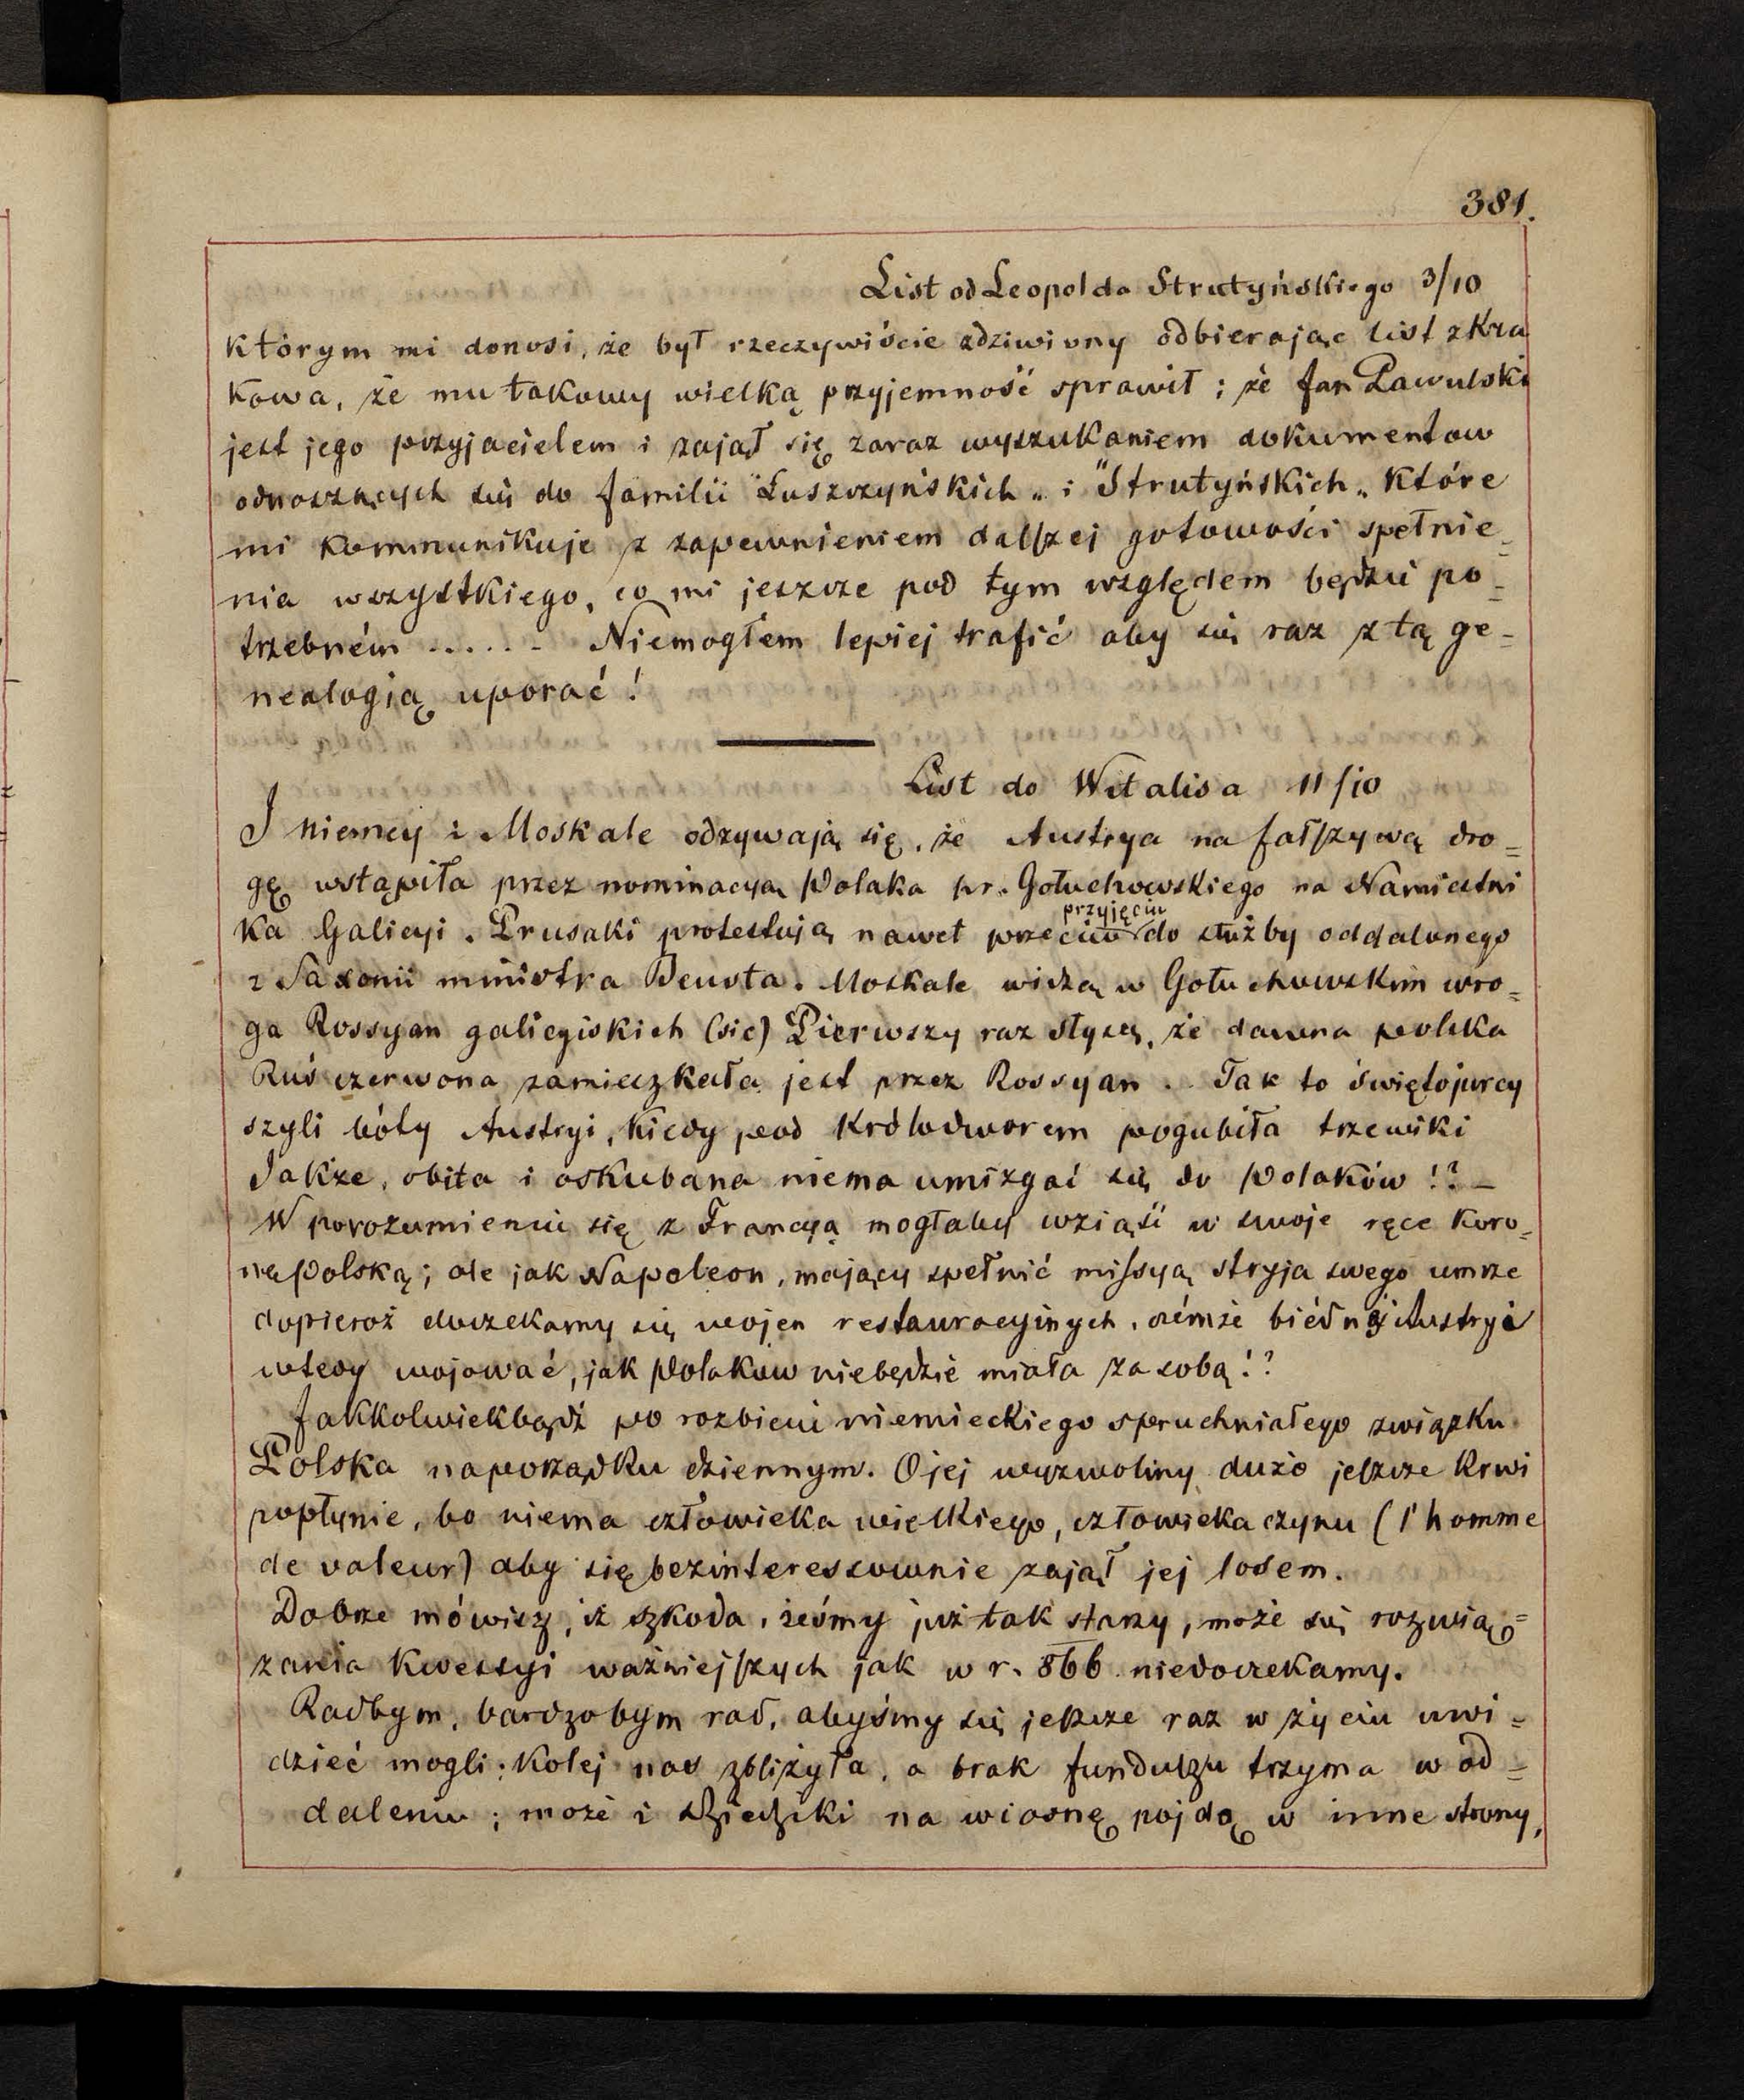 381.
List od Leopolda Strutyńskiego 3/10
którym mi donosi, że był rzeczywiście zdziwiony odbierając list z Kra
kowa, że mu takowy wielką przyjemność sprawił; że Jan Ławulski
jest jego przyjacielem i zajął się zaraz wyszukaniem dokumentow
odnoszących się do familii "Łuszczyńskich„ i "Strutyńskich„ które
mi kommunikuje z zapewnieniem dalszej gotowości spełnie=
nia wszystkiego, co mi jeszcze pod tym względem będzie po=
trzebném ...... Niemogłem lepiej trafić aby się raz z tą ge=
nealogią uporać!
List do Witalisa 11/10
I niemcy i Moskale odzywają się, że Austrya na fałszywą dro=
gę wstąpiła przez nominacyą Polaka hr. Gołuchowskiego na Namiestni
ka Galicyi. Prusaki protestują nawet przeciw przyjęciu do służby oddalonego
z Saxonii ministra Beusta. Moskale widzą w Gołuchowskim wro=
ga Rossyan galicyiskich (sic) Pierwszy raz słyszę, że dawna polska
Ruś czerwona zamieszkała jest przez Rossyan. Tak to świętojurcy
szyli bóty Austryi, kiedy pod Królodworem pogubiła trzewiki
Jakże, obita i oskubana niema umizgać się do Polaków!? –
W porozumieniu się z Francyą mogłaby wziąść w swoje ręce koro=
nę Polską; ale jak Napoleon, mający spełnić missyą stryja swego umrze
dopieroż doczekamy się wojen restauracyinych, czémże biédnéj Austryi
wtedy wojować, jak Polaków niebędzie miała za sobą!?
Jakkolwiekbądź po rozbiciu niemieckiego spruchniałego związku
Polska naporządku dziennym. O jej wyzwoliny dużo jeszcze krwi
popłynie, bo niema człowieka wielkiego, człowieka czynu (l'homme
de valeur) aby się bezinteressownie zajął jej losem.
Dobrze mówisz, iż szkoda, żeśmy już tak starzy, może się rozwią=
zania kwestyi ważniejszych jak w r. 866 niedoczekamy.
Radbym, bardzobym rad, abyśmy się jeszcze raz w życiu uwi=
dzieć mogli; Kolej nas zbliżyła, a brak funduszu trzyma w od=
daleniu; może i Dziedziki na wiosnę pojdą w inne strony,